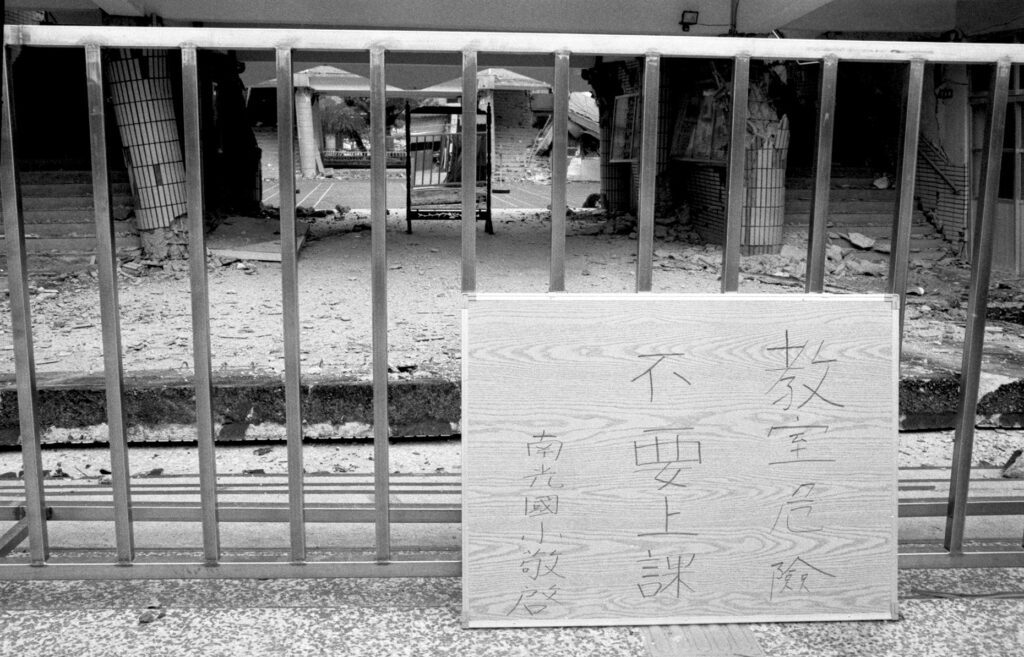 教室危險
不要上課
南光國小敬啓